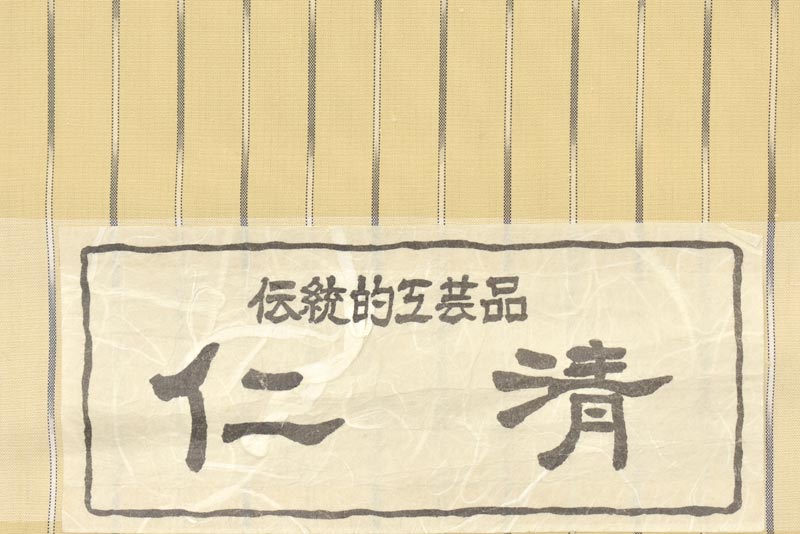 伝統的工芸品
仁清